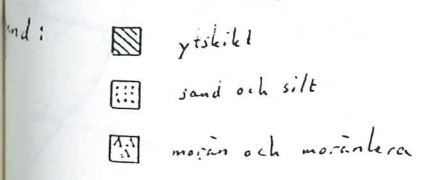 nd:
ytskikt
sand och silt
morän och moränlera